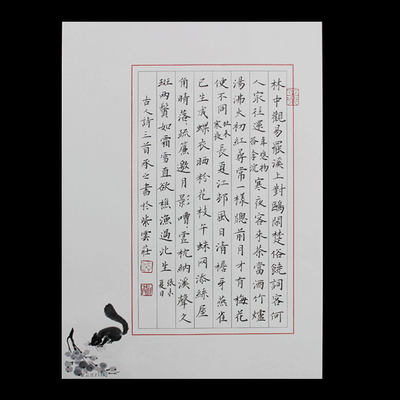 林中觀易罷溪上對鷗閒楚俗饒詞客何
人最往還韋應物答李浣寒夜客來茶當酒竹爐
湯沸火初紅尋常一樣窗前月才有梅花
便不同杜耒寒夜長夏江邨風日清檐牙燕雀
已生成蝶衣晒粉花枝午蛛网添絲屋
角晴落〻疏簾邀月影嘈〻虛枕納溪聲久
斑兩鬢如霜雪直欲樵漁過此生張耒夏日
古人詩三首承之書於紫雲莊